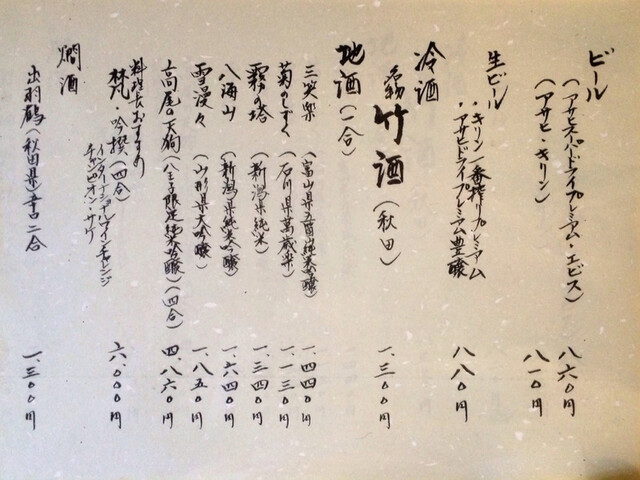 ビール
(アサヒスーパードライプレミアム・エビス) 八六〇円
(アサヒ・キリン) 八一〇円
生ビール
・キリン一番搾りプレミアム
・アサヒドライプレミアム豊醸 八八〇円
冷酒
竹酒(秋田) 一、三〇〇円
地酒(一合)
三笑楽(富山県五箇山純米吟醸) 一、四四〇円
菊のしずく(石川県萬歳楽) 一、一三〇円
霧の塔(新潟県純米) 一、三四〇円
八海山(新潟県純米吟醸) 一、六四〇円
雪漫々(山形県大吟醸) 一、八五〇円
高尾の天狗(八王子限定純米吟醸)(四合) 四、八六〇円
料理長おすすめ
梵・吟撰(四合) 六、〇〇〇円
インターナショナルワインチャレンジ
チャンピオン・サケ
燗酒
出羽鶴(秋田県)辛口二合 一、三〇〇円